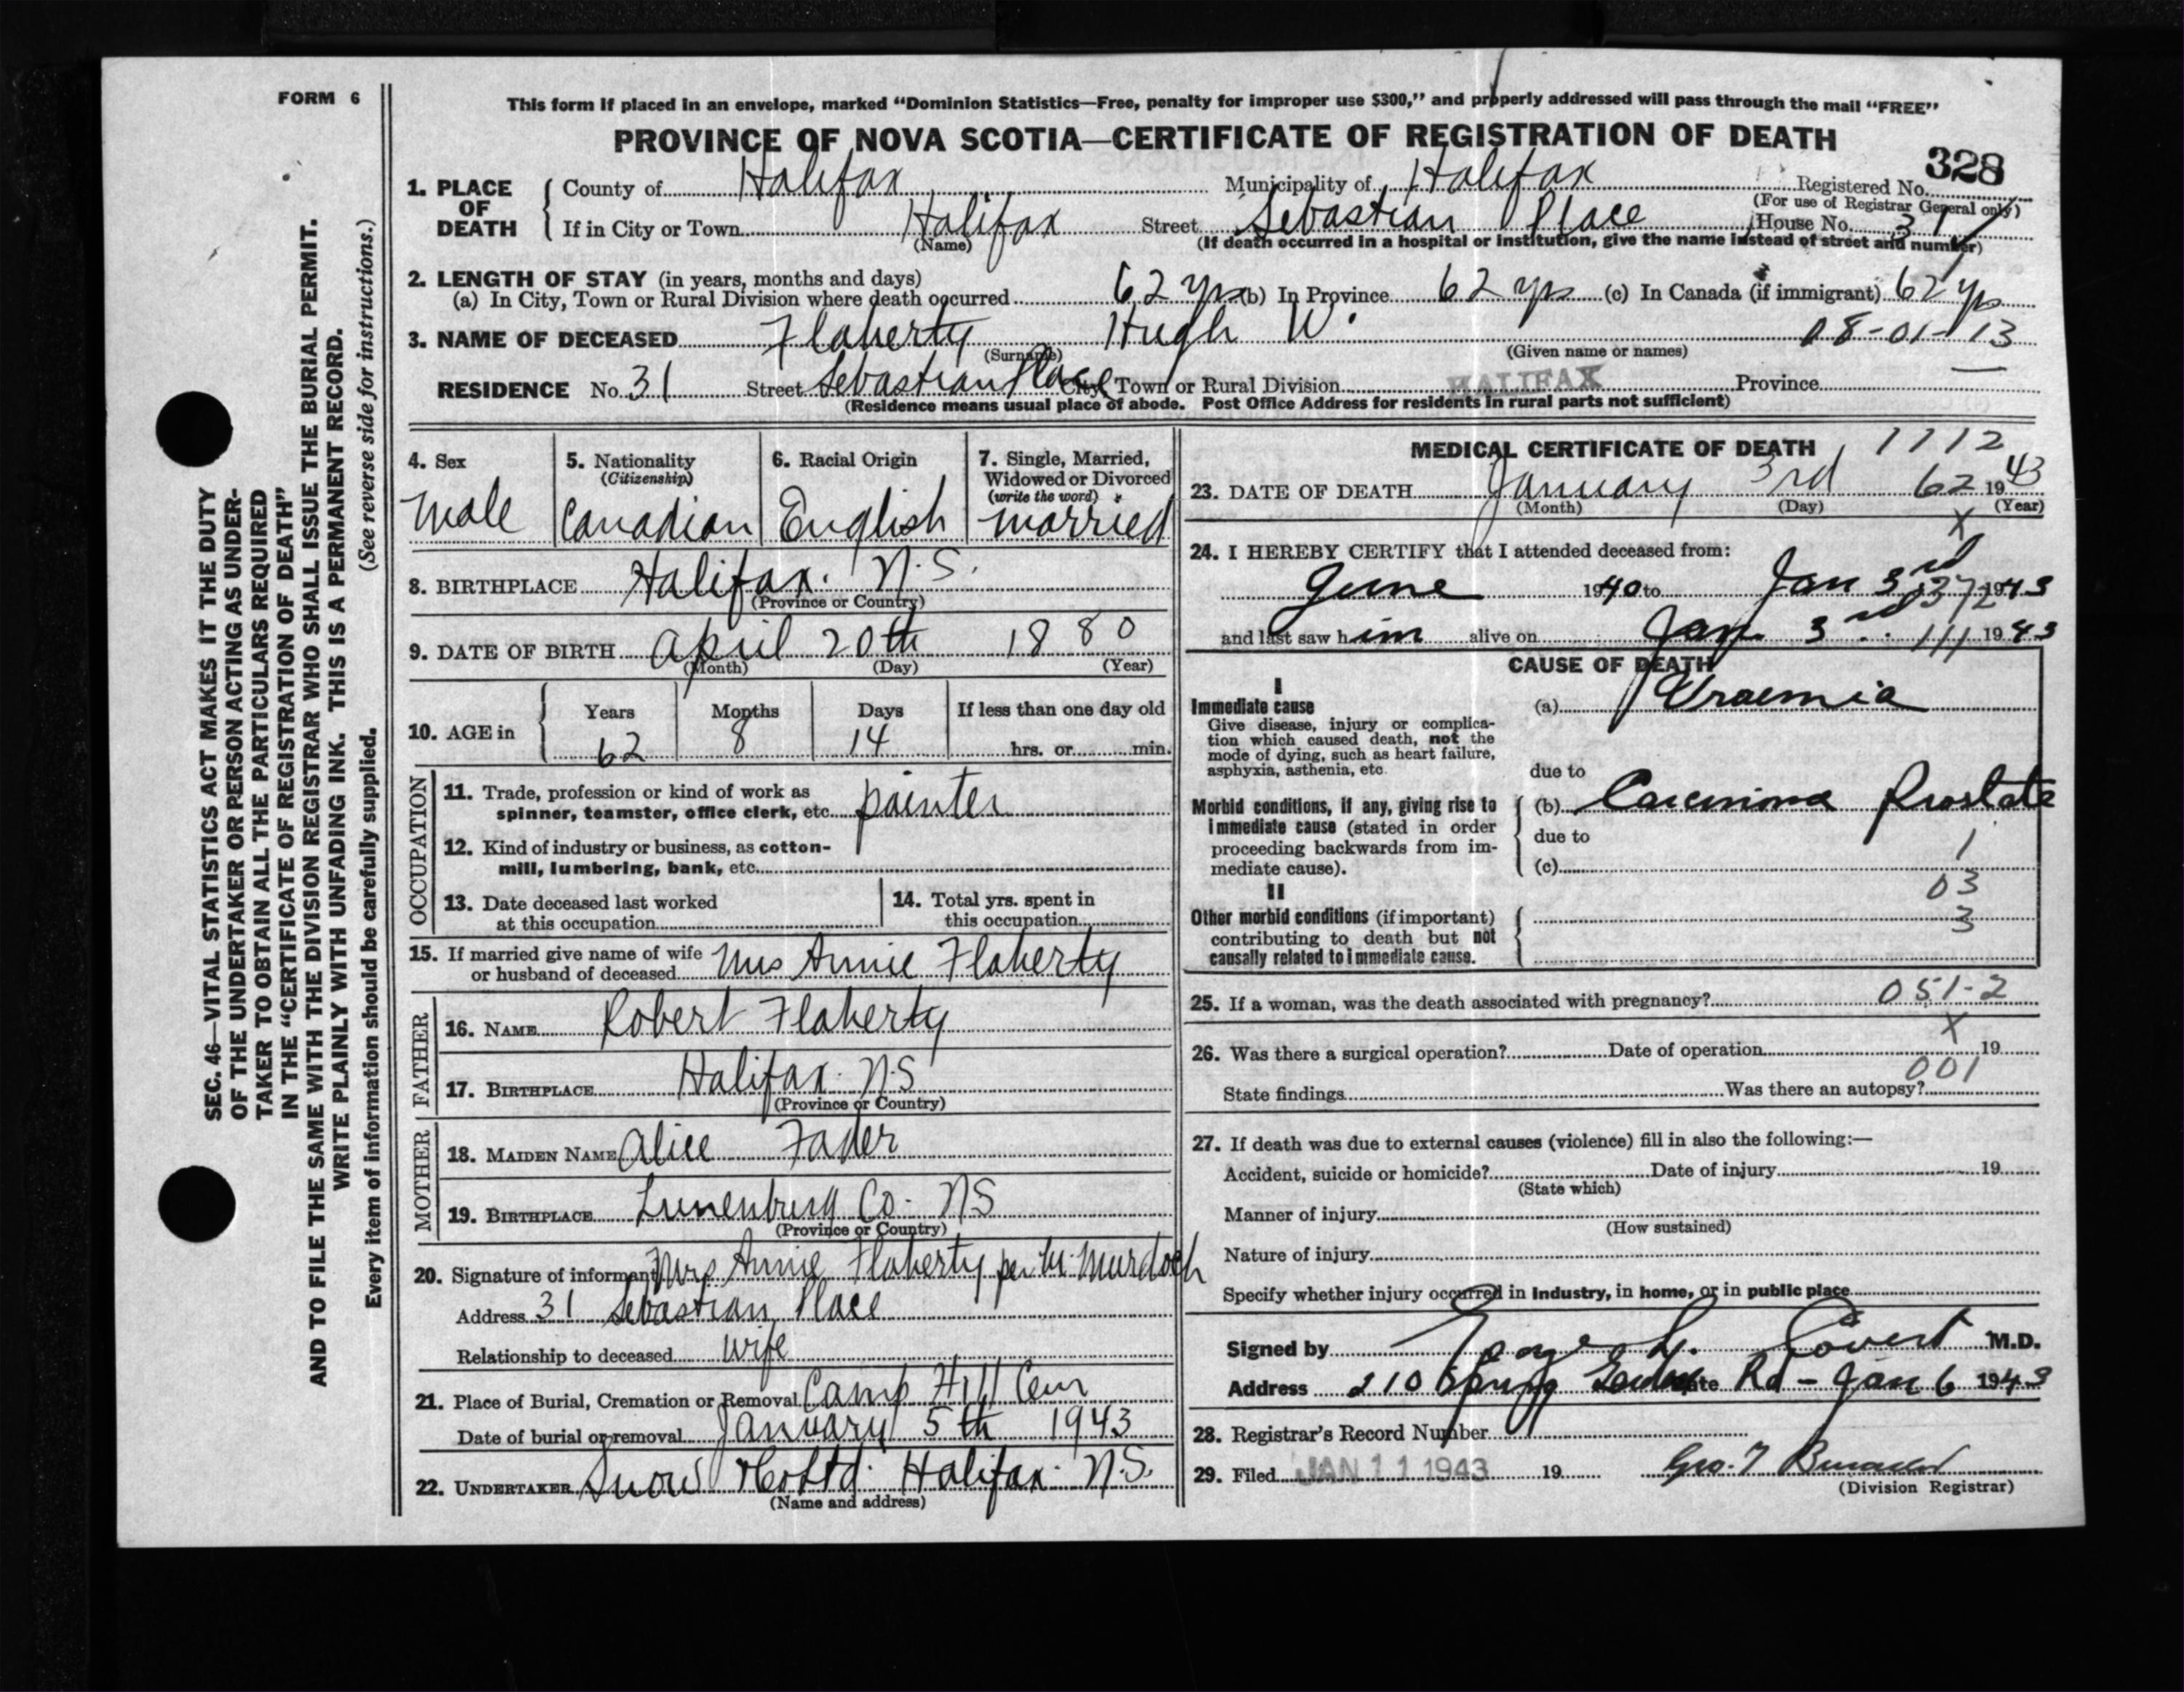 FORM 6
This form if placed in an envelope, marked "Dominion Statistics—Free, penalty for improper use $300," and properly addressed will pass through the mail "FREE"
PROVINCE OF NOVA SCOTIA—CERTIFICATE OF REGISTRATION OF DEATH
328
1. PLACE OF DEATH { County of Halifax Municipality of Halifax Registered No.
(For use of Registrar General only)
If in City or Town Halifax Street Sebastian Place House No. 31
(Name) (If death occurred in a hospital or institution, give the name instead of street and number)
2. LENGTH OF STAY (in years, months and days)
(a) In City, Town or Rural Division where death occurred 62 yrs (b) In Province 62 yrs (c) In Canada (if immigrant) 62 yrs
3. NAME OF DECEASED Flaherty Hugh W. 08-01-13
(Surname) (Given name or names)
RESIDENCE No. 31 Street Sebastian Place City, Town or Rural Division HALIFAX Province —
(Residence means usual place of abode. Post Office Address for residents in rural parts not sufficient)
4. Sex
male
5. Nationality
(Citizenship)
Canadian
6. Racial Origin
English
7. Single, Married,
Widowed or Divorced
(write the word)
married
8. BIRTHPLACE Halifax. N.S.
(Province or Country)
9. DATE OF BIRTH April 20th 1880
(Month) (Day) (Year)
10. AGE in { Years Months Days If less than one day old
62 8 14 hrs. or min.
OCCUPATION
11. Trade, profession or kind of work as
spinner, teamster, office clerk, etc. painter
12. Kind of industry or business, as cotton-
mill, lumbering, bank, etc.
13. Date deceased last worked
at this occupation
14. Total yrs. spent in
this occupation
15. If married give name of wife
or husband of deceased Mrs Annie Flaherty
FATHER
16. NAME Robert Flaherty
17. BIRTHPLACE Halifax. N.S
(Province or Country)
MOTHER
18. MAIDEN NAME Alice Fader
19. BIRTHPLACE Lunenburg Co. NS
(Province or Country)
20. Signature of informant Mrs Annie Flaherty per W. Murdoch
Address 31 Sebastian Place
Relationship to deceased wife
21. Place of Burial, Cremation or Removal Camp Hill Cem
Date of burial or removal January 5th 1943
22. UNDERTAKER Snow & Co Ltd. Halifax. N.S.
(Name and address)
MEDICAL CERTIFICATE OF DEATH 1112
23. DATE OF DEATH January 3rd 62 1943
(Month) (Day) (Year)
X
24. I HEREBY CERTIFY that I attended deceased from:
June 1940 to Jan 3rd 1943
and last saw him alive on Jan 3rd 111 1943
CAUSE OF DEATH
I
Immediate cause
Give disease, injury or complica-
tion which caused death, not the
mode of dying, such as heart failure,
asphyxia, asthenia, etc.
(a) Uraemia
due to
Morbid conditions, if any, giving rise to
immediate cause (stated in order
proceeding backwards from im-
mediate cause).
(b) Carcinoma Prostate
due to
1
(c)
03
II
Other morbid conditions (if important)
contributing to death but not
causally related to immediate cause.
3
25. If a woman, was the death associated with pregnancy? 051-2
X
26. Was there a surgical operation? Date of operation 19
001
State findings Was there an autopsy?
27. If death was due to external causes (violence) fill in also the following:—
Accident, suicide or homicide? Date of injury 19
(State which)
Manner of injury
(How sustained)
Nature of injury
Specify whether injury occurred in industry, in home, or in public place
Signed by Covert M.D.
Address 210 Spring Garden Rd - Date Jan 6 1943
28. Registrar's Record Number
29. Filed JAN 11 1943 19
(Division Registrar)
SEC. 46—VITAL STATISTICS ACT MAKES IT THE DUTY
OF THE UNDERTAKER OR PERSON ACTING AS UNDER-
TAKER TO OBTAIN ALL THE PARTICULARS REQUIRED
IN THE "CERTIFICATE OF REGISTRATION OF DEATH"
AND TO FILE THE SAME WITH THE DIVISION REGISTRAR WHO SHALL ISSUE THE BURIAL PERMIT.
WRITE PLAINLY WITH UNFADING INK. THIS IS A PERMANENT RECORD.
Every item of information should be carefully supplied. (See reverse side for instructions.)